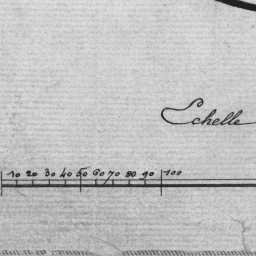 Echelle
10 20 30 40 50 60 70 80 90 100